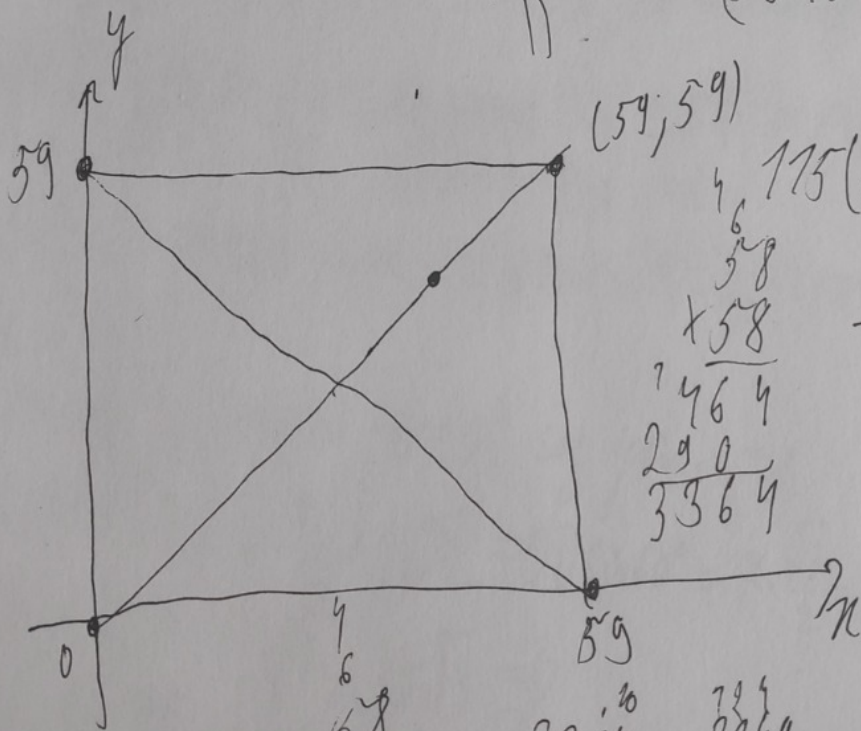 y
59
(59; 59)
115(
4
6
58
×58
464
290
3364
0
59
x
4
6
58